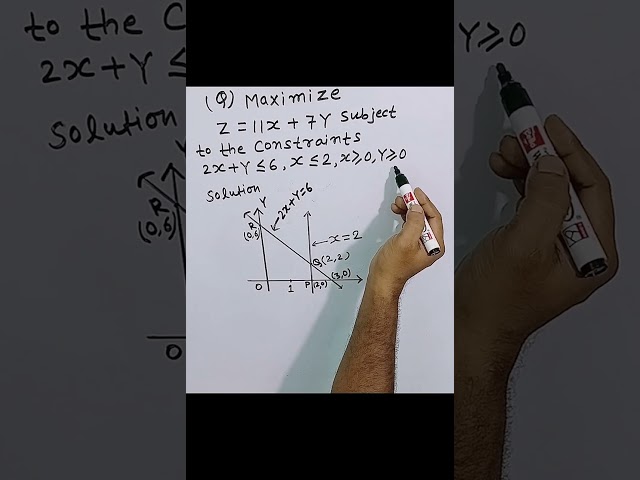 to the C
2x+Y ≤
Solution
Y≥0
(Q) Maximize
Z = 11x + 7Y Subject
to the Constraints
2x+Y ≤ 6, x ≤ 2, x≥0, Y≥0
Solution
Y
2x+Y=6
R
(0,6)
x = 2
Q(2,2)
(3,0)
O
1
P
(2,0)
R
(0,6)
O